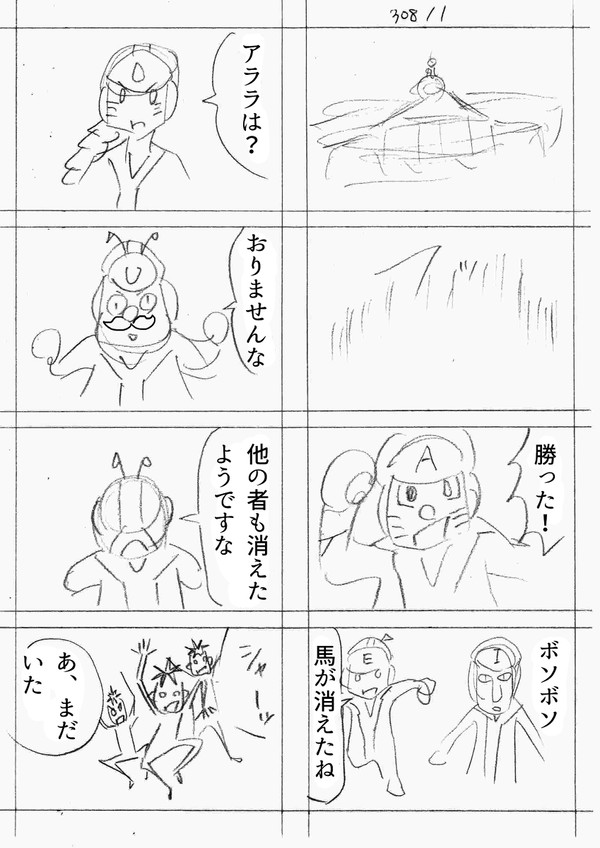 308/1
勝った！
A
ボソボソ
I
馬が消えたね
E
アララは？
おりませんな
U
他の者も消えた
ようですな
シャーッ
あ、まだ
いた